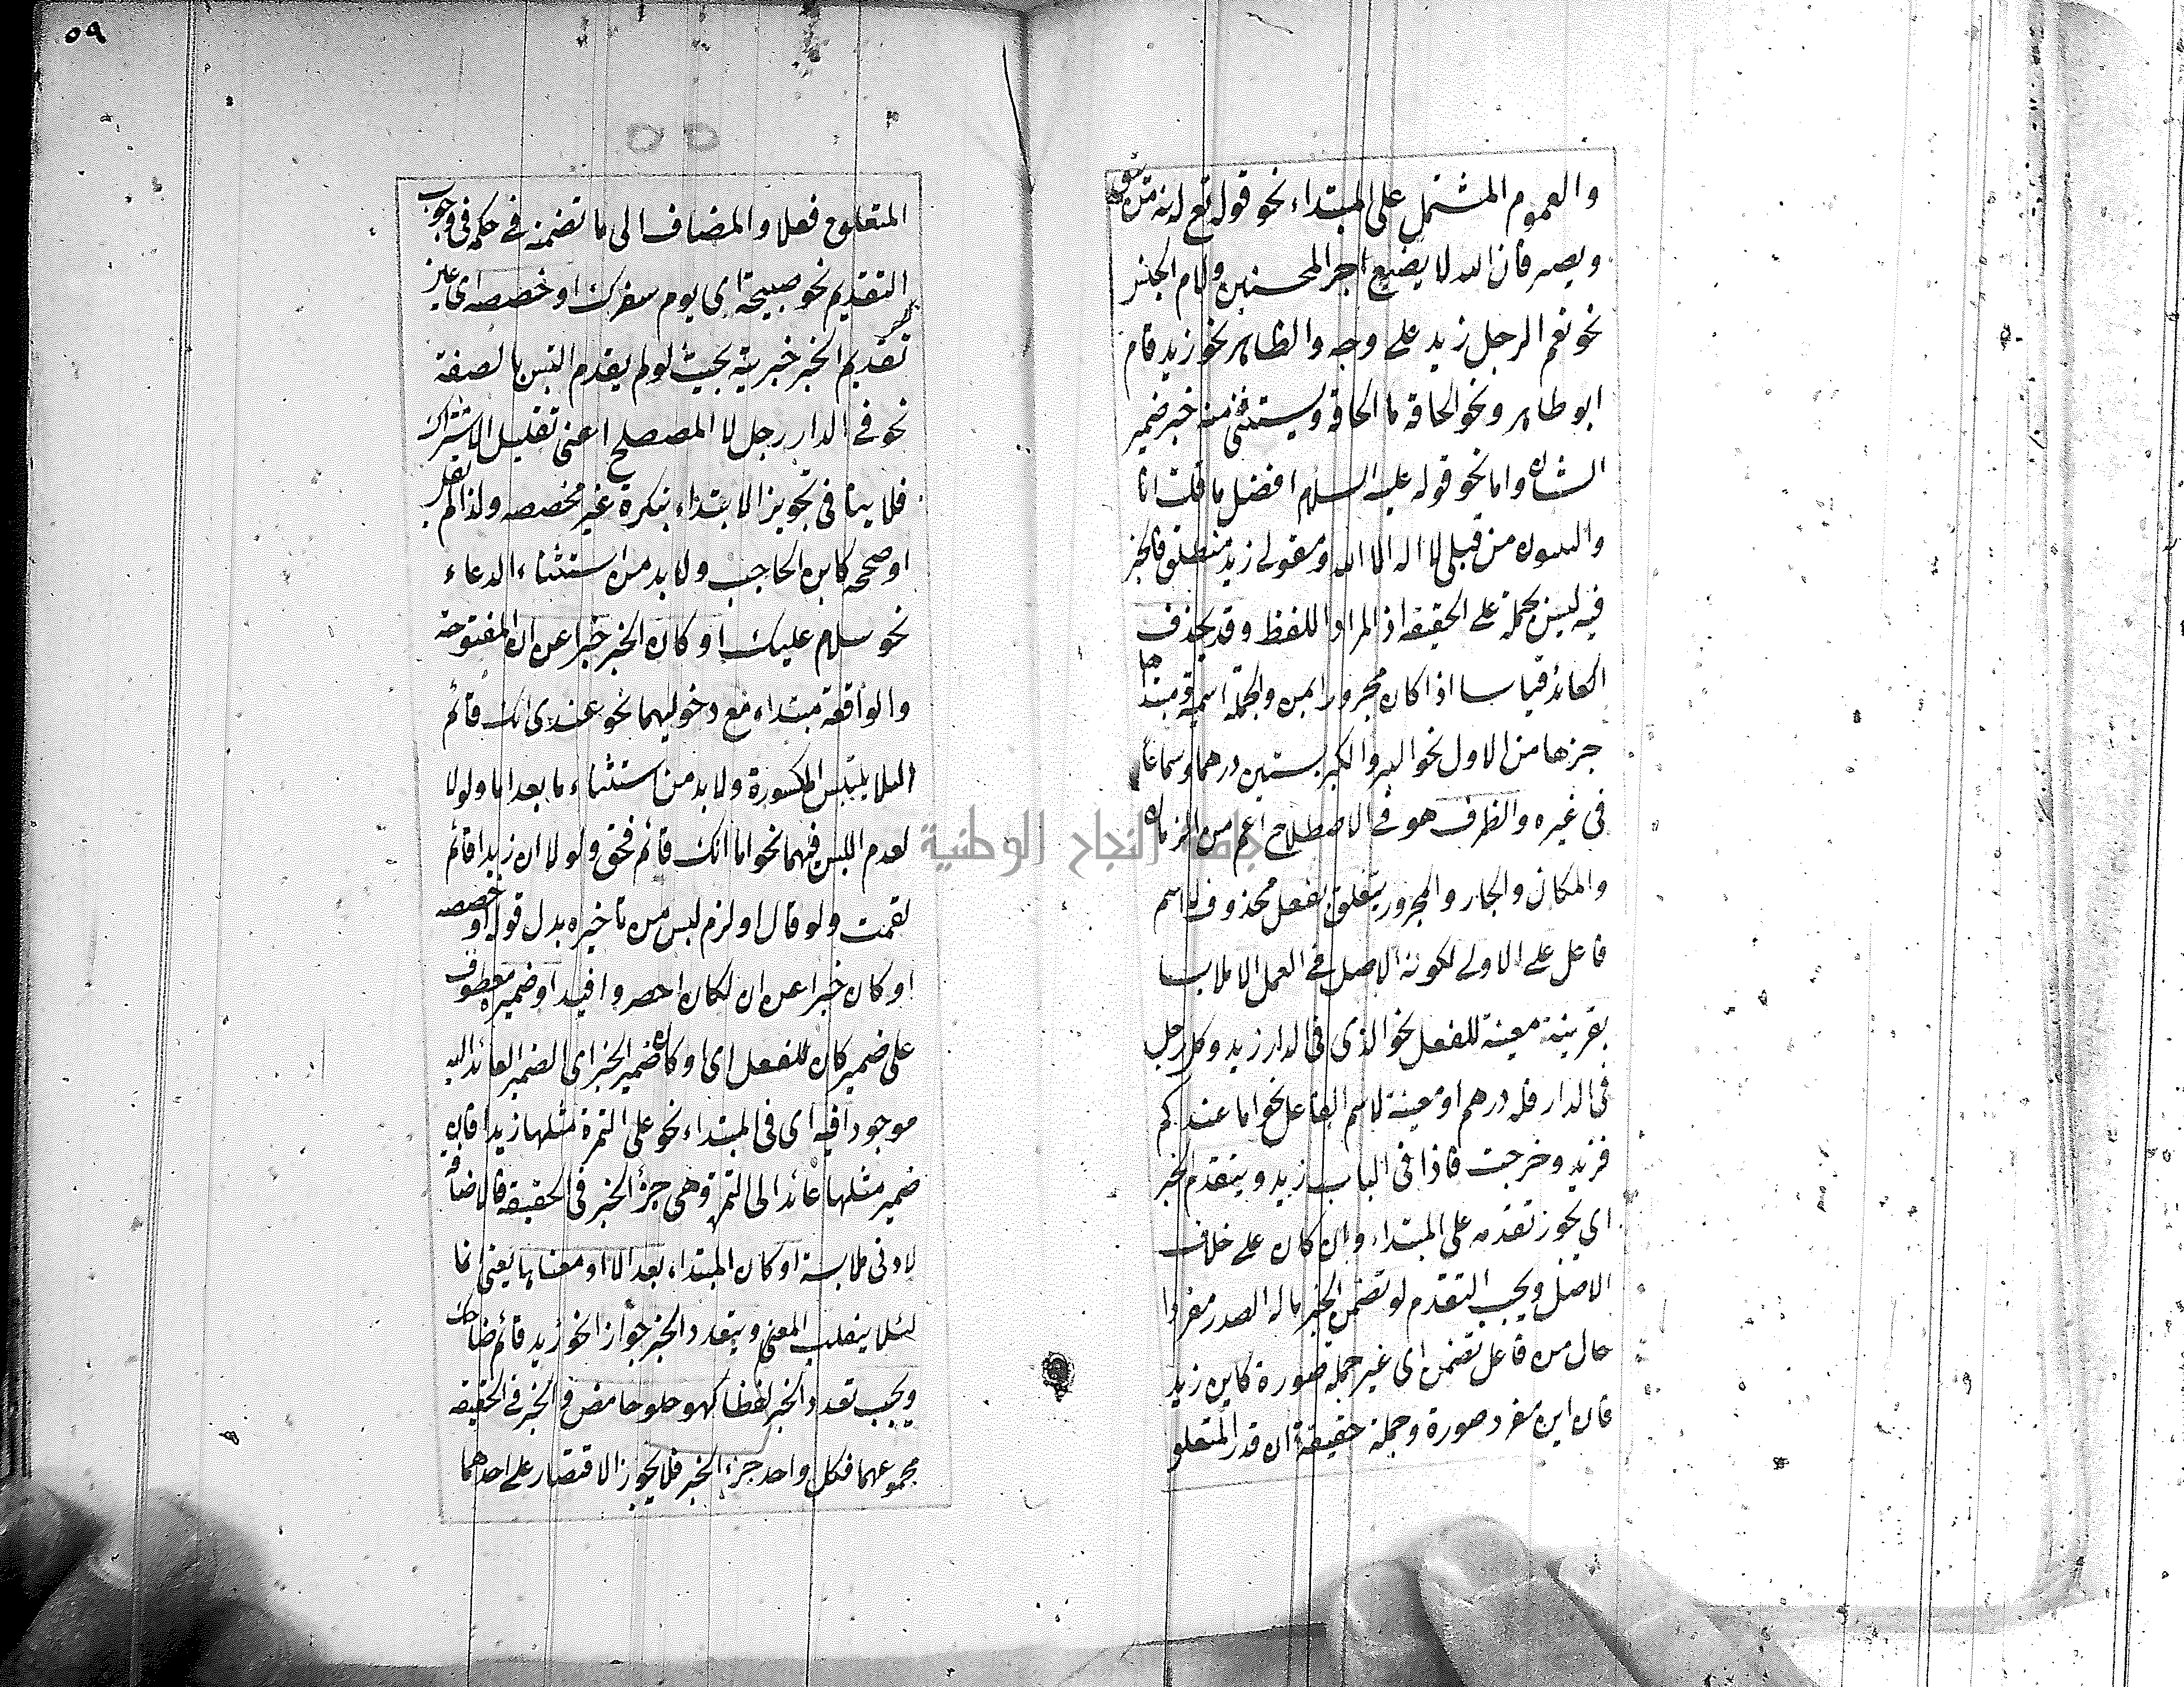 والعموم المشتمل على المبتداء نحو قوله تع انه من يتق
ويصبر فان الله لا يضيع اجر المحسنين ولام الجنس
نحو نعم الرجل زيد على وجه والظاهر نحو زيد قام
ابو طاهر ونحو الحاقة ما الحاقة ويستثنى منه خبر ضمير
الشان واما نحو قوله عليه السلام افضل ما قلت انا
والنبيون من قبلى لا اله الا الله ومقولى زيد منطلق فالخبر
فيه ليس بجملة على الحقيقة اذ المراد اللفظ وقد يحذف
العائد قياسا اذا كان مجرورا بمن والجملة اسمية مبتداها
جزءها من الاول نحو البر والكر بستين درهما وسماعا
فى غيره والظرف هو فى الاصطلاح اعم من الزمان
والمكان والجار والمجرور يتعلق بفعل محذوف لا اسم
فاعل على الاولى لكونه الاصل فى العمل الا ملابسا
بقرينة معينة للفعل نحو الذى فى الدار زيد وكل رجل
فى الدار فله درهم او معينة لاسم الفاعل نحو اما عندكم
فزيد وخرجت فاذا فى الباب زيد ويتقدم الخبر
اى يجوز تقدمه على المبتداء وان كان على خلاف
الاصل ويجب التقدم لو تضمن الخبر ما له الصدر مفردا
حال من فاعل تضمن اى غير جملة صورة كاين زيد
فان اين مفرد صورة وجملة حقيقة ان قدر المتعلق
٥٩
٥٥
المتعلق فعلا والمضاف الى ما تضمنه فى حكمه فى وجوب
التقديم نحو صبيحة اى يوم سفرك او خصصه اى
تقديم الخبر خبريته بحيث لو لم يقدم التبس بالصفة
نحو فى الدار رجل لا المصحح اعنى تقليل الاشتراك
فلا ينافى تجويز الابتداء بنكرة غير مخصصة ولذا لم يقل
او صححه كابن الحاجب ولا بد من استثناء الدعاء
نحو سلام عليك او كان الخبر خبرا عن ان المفتوحة
والواقعة مبتداء مع دخوليهما نحو عندى انك قائم
لئلا يلتبس المكسورة ولا بد من استثناء ما بعد اما ولولا
لعدم اللبس فيهما نحو اما انك قائم فحق ولولا ان زيدا قائم
لقمت ولو قال او لزم لبس من تاخيره بدل قوله او خصصه
او كان خبرا عن ان لكان احصر وافيد او ضميره معطوف
على ضمير كان للفعل اى او كان ضمير الخبر اى الضمير العائد اليه
موجودا فيه اى فى المبتداء نحو على التمرة مثلها زيدا فان
ضمير مثلها عائد الى التمرة وهى جزؤ الخبر فى الحقيقة فالاضافة
لادنى ملابسة او كان المبتداء بعد الا او معناها يعنى انما
لئلا ينقلب المعنى ويتعدد الخبر جوازا نحو زيد قائم ضاحك
ويجب تعدد الخبر لفظا كهو حلو حامض فالخبر فى الحقيقة
مجموعهما فكل واحد جزء الخبر فلا يجوز الاقتصار على احدهما
جامعة النجاح الوطنية